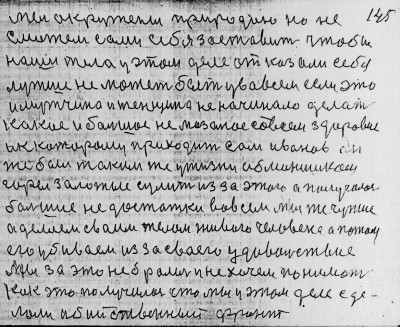 мы окружены природою но не 145
сможем сами себя заставит чтобы
наши тела у этом деле отказали себя
лучше не может быть у вовсем если это
и мущина и женщина не начинало делат
какое и бальное не мазаное совсем здоровие
и к которому приходит сам иванов он
же был таким же у жизни обманшиком
сырел золотые сулит из за этого а получалос
больше недостатки вовсем мы же чужие
а делаем своим телом живого человека а потом
его убиваем из за своего удовольствие
мы за это не бралос и не хочем понимат
как это получалос что мы у этом деле сде-
лали убийственный фронт